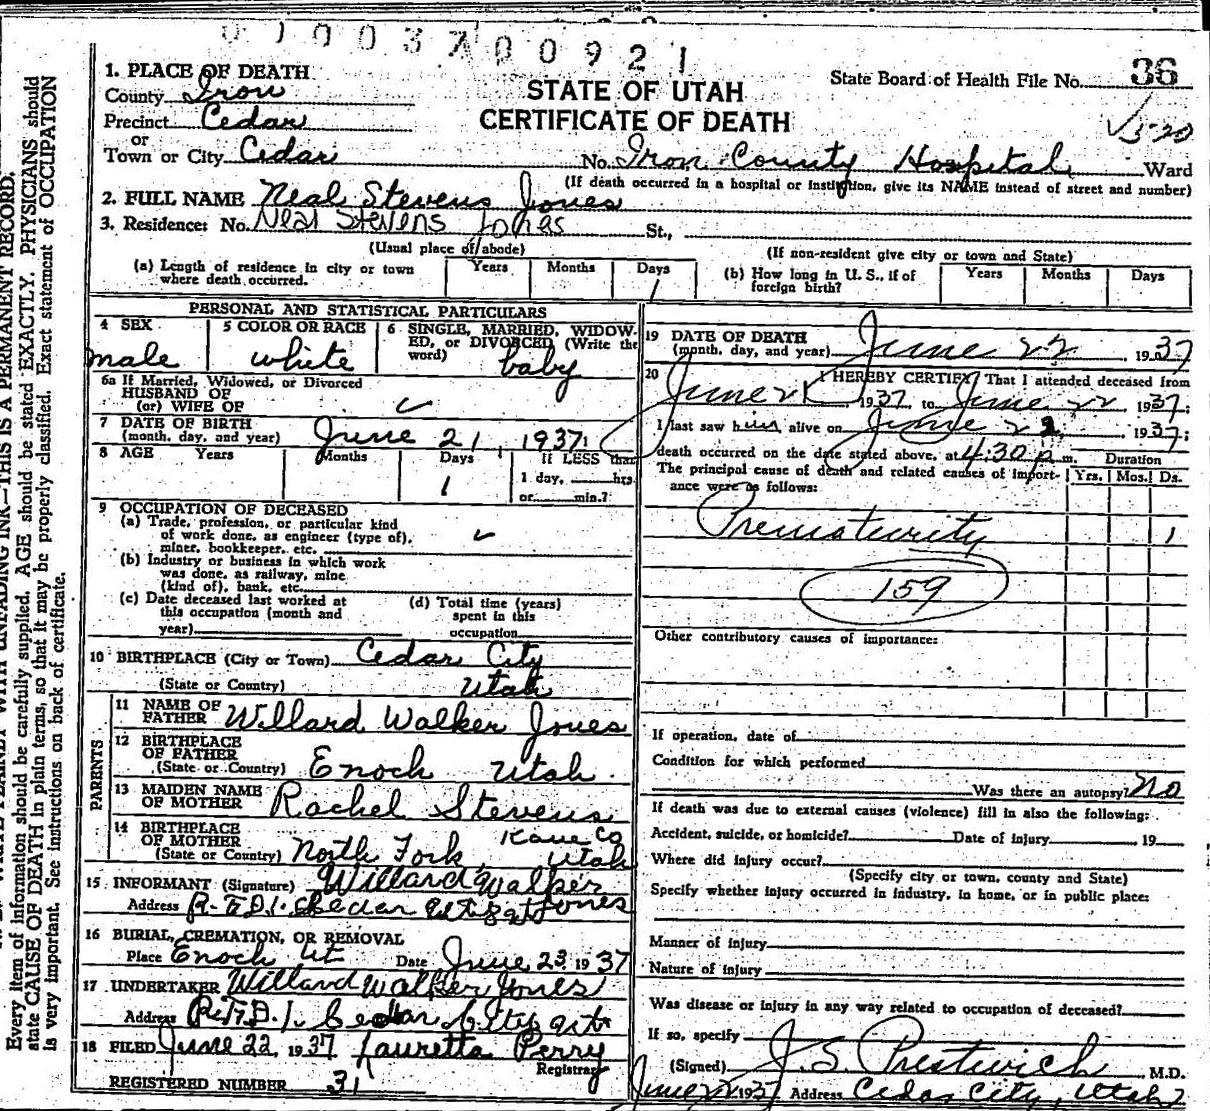 0100370 0921
1. PLACE OF DEATH
County Iron
Precinct Cedar
or
Town or City Cedar
STATE OF UTAH
CERTIFICATE OF DEATH
State Board of Health File No. 36
No. Iron County Hospital Ward
(If death occurred in a hospital or institution, give its NAME instead of street and number)
2. FULL NAME Neal Stevens Jones
3. Residence: No. Neal Stevens Jones St.,
(Usual place of abode)
(If non-resident give city or town and State)
(a) Length of residence in city or town where death occurred. Years Months Days 1
(b) How long in U. S., if of foreign birth? Years Months Days
PERSONAL AND STATISTICAL PARTICULARS
4 SEX male
5 COLOR OR RACE white
6 SINGLE, MARRIED, WIDOWED, or DIVORCED (Write the word) baby
6a If Married, Widowed, or Divorced
HUSBAND OF
(or) WIFE OF
7 DATE OF BIRTH
(month, day, and year) June 21, 1937
8 AGE Years Months Days 1 If LESS than
1 day, hrs.
or min.?
9 OCCUPATION OF DECEASED
(a) Trade, profession, or particular kind
of work done, as engineer (type of),
miner, bookkeeper, etc.
(b) Industry or business in which work
was done, as railway, mine
(kind of), bank, etc.
(c) Date deceased last worked at
this occupation (month and
year)
(d) Total time (years)
spent in this
occupation
10 BIRTHPLACE (City or Town) Cedar City
(State or Country) Utah
PARENTS
11 NAME OF FATHER Willard Walker Jones
12 BIRTHPLACE OF FATHER
(State or Country) Enoch Utah
13 MAIDEN NAME OF MOTHER Rachel Stevens
14 BIRTHPLACE OF MOTHER
(State or Country) North Fork, Kane Co Utah
15 INFORMANT (Signature) Willard Walker Jones
Address R.F.D.1. Cedar
16 BURIAL, CREMATION, OR REMOVAL
Place Enoch Ut Date June 23, 1937
17 UNDERTAKER Willard Walker Jones
Address R.F.D.1. Cedar City
18 FILED June 22, 1937 Lauretta Perry
Registrar
REGISTERED NUMBER 31
19 DATE OF DEATH
(month, day, and year) June 22 1937
20 I HEREBY CERTIFY, That I attended deceased from
June 21, 1937, to June 22, 1937;
I last saw him alive on June 22, 1937;
death occurred on the date stated above, at 4:30 p.m.
The principal cause of death and related causes of importance were as follows:
Duration
Yrs. Mos. Ds.
Prematurity 1
159
Other contributory causes of importance:
If operation, date of
Condition for which performed
Was there an autopsy? No
If death was due to external causes (violence) fill in also the following:
Accident, suicide, or homicide? Date of injury 19
Where did injury occur?
(Specify city or town, county and State)
Specify whether injury occurred in industry, in home, or in public place:
Manner of injury
Nature of injury
Was disease or injury in any way related to occupation of deceased?
If so, specify
(Signed) J. S. Prestwich, M.D.
June 22 1937 Address Cedar City, Utah
Every item of information should be carefully supplied. AGE should be stated EXACTLY. PHYSICIANS should
state CAUSE OF DEATH in plain terms, so that it may be properly classified. Exact statement of OCCUPATION
is very important. See instructions on back of certificate.